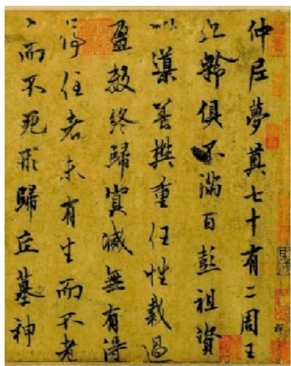 仲尼夢奠七十有二周王
九齡俱不滿百彭祖資
以導養樊重任性裁過
盈數終歸冥滅無有得
停住者未有生而不老
而不死形歸丘墓神